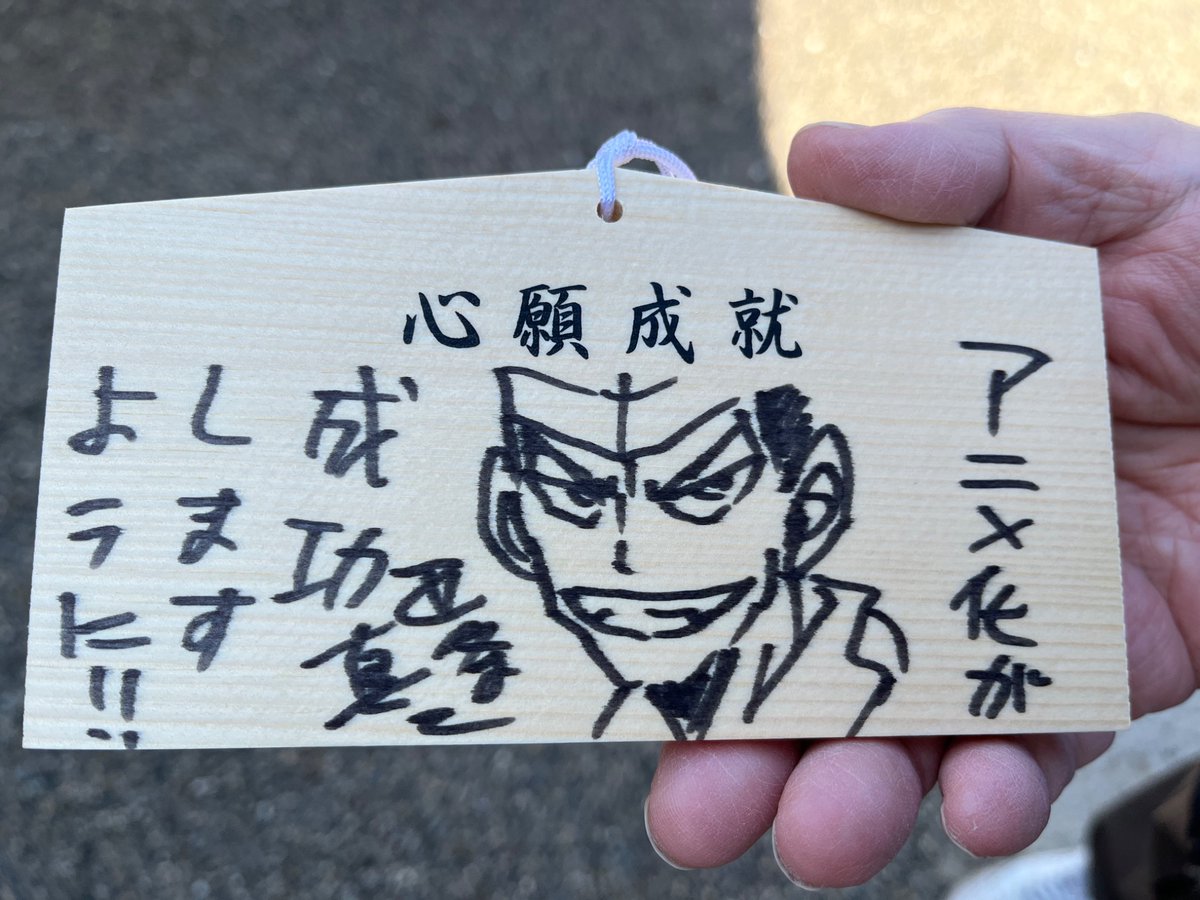 心願成就
アニメ化が
成功
します
ように!!